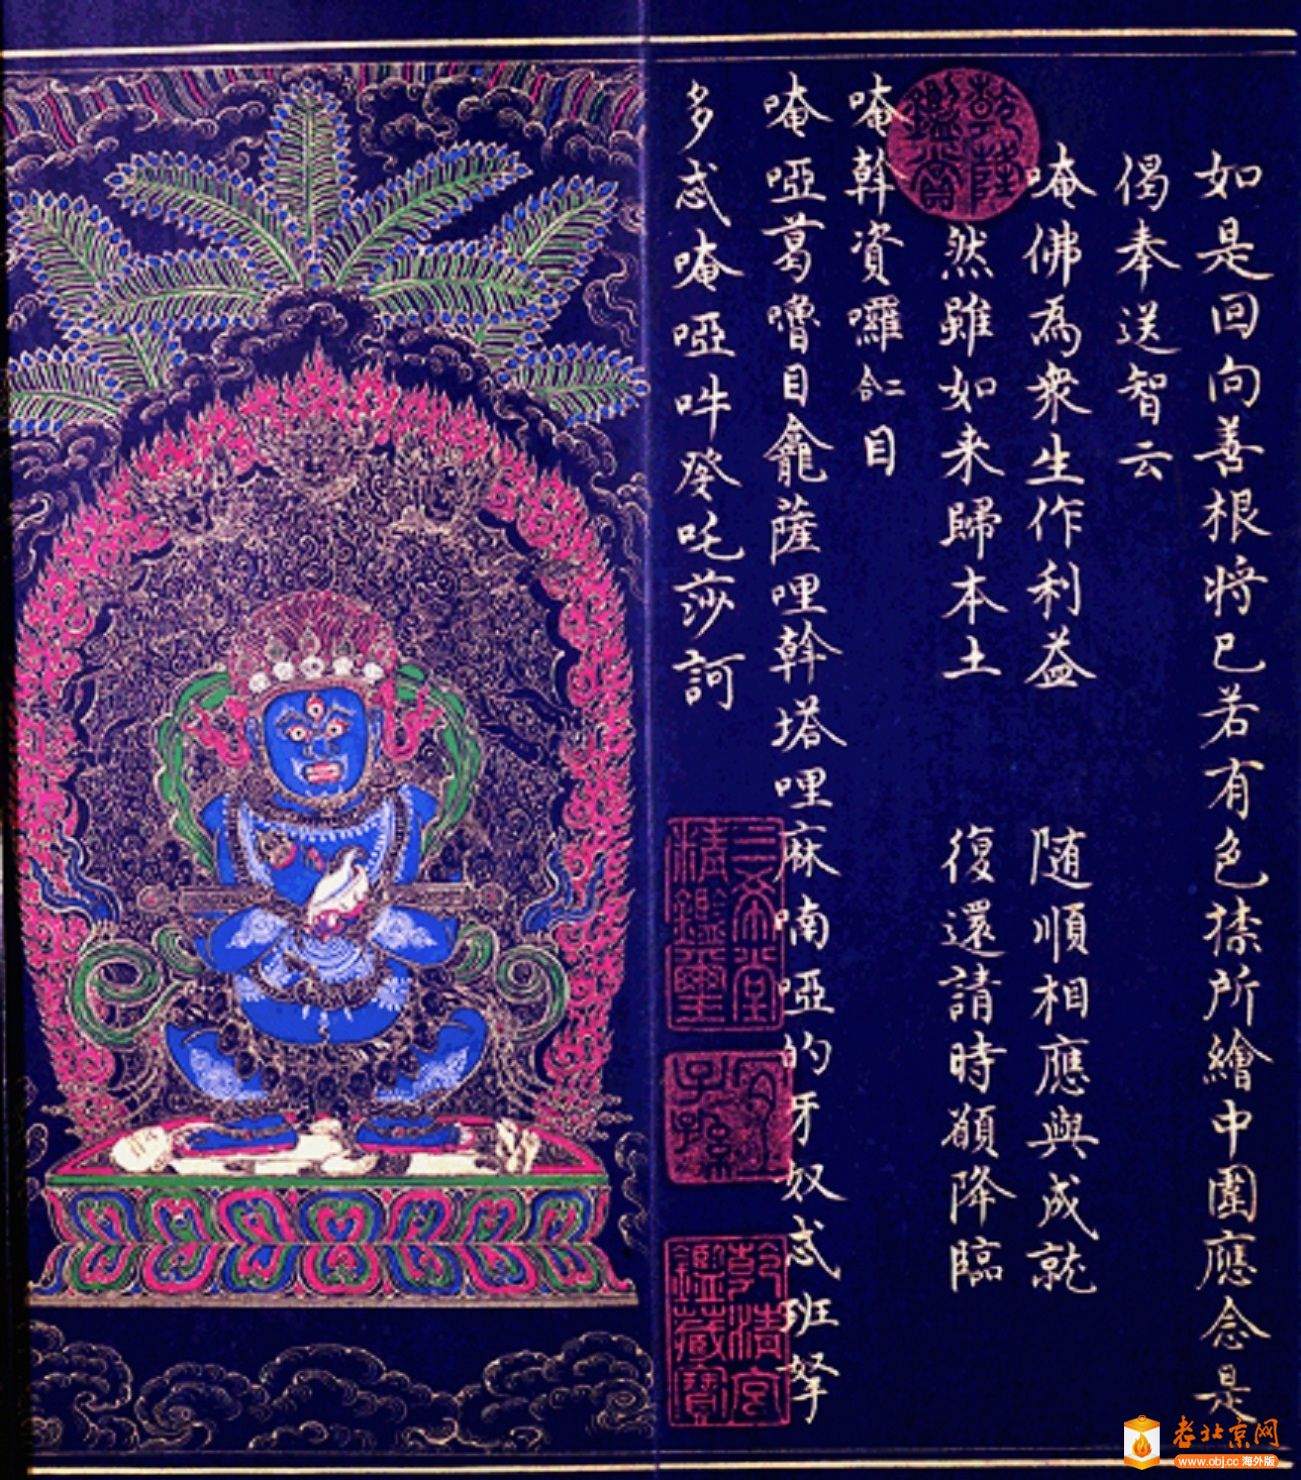 如是回向善根將已若有色捺所繪中圍應念是
偈奉送智云
唵佛為衆生作利益 随順相應與成就
然雖如来歸本土 復還請時願降臨
唵斡資囉二合目
唵啞葛嚕目龕薩哩斡塔哩麻喃啞的牙奴忒班拏
多忒唵啞吽癹吒莎訶
乾隆鑑賞
三希堂精鑑璽
宜子孫
乾清宮鑑藏寶
老北京网
www.obj.cc 海外版